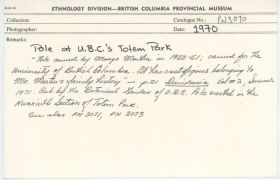 ETHNOLOGY DIVISION—BRITISH COLUMBIA PROVINCIAL MUSEUM
Collection: Catalogue No.: PN3070
Photographer: Date: 1970
Remarks:
Pole at U.B.C.'s Totem Park
Pole carved by Mungo Martin in 1950-51; carved for the
University of British Columbia. It has crest figures belonging to
Mr. Martin's family history - p.21 Vol #2, Summer
1971. Pub by the Botanical Garden of U.B.C. Pole erected in the
Kwakiutl Section of Totem Park.
See also PN 3071, PN 3073